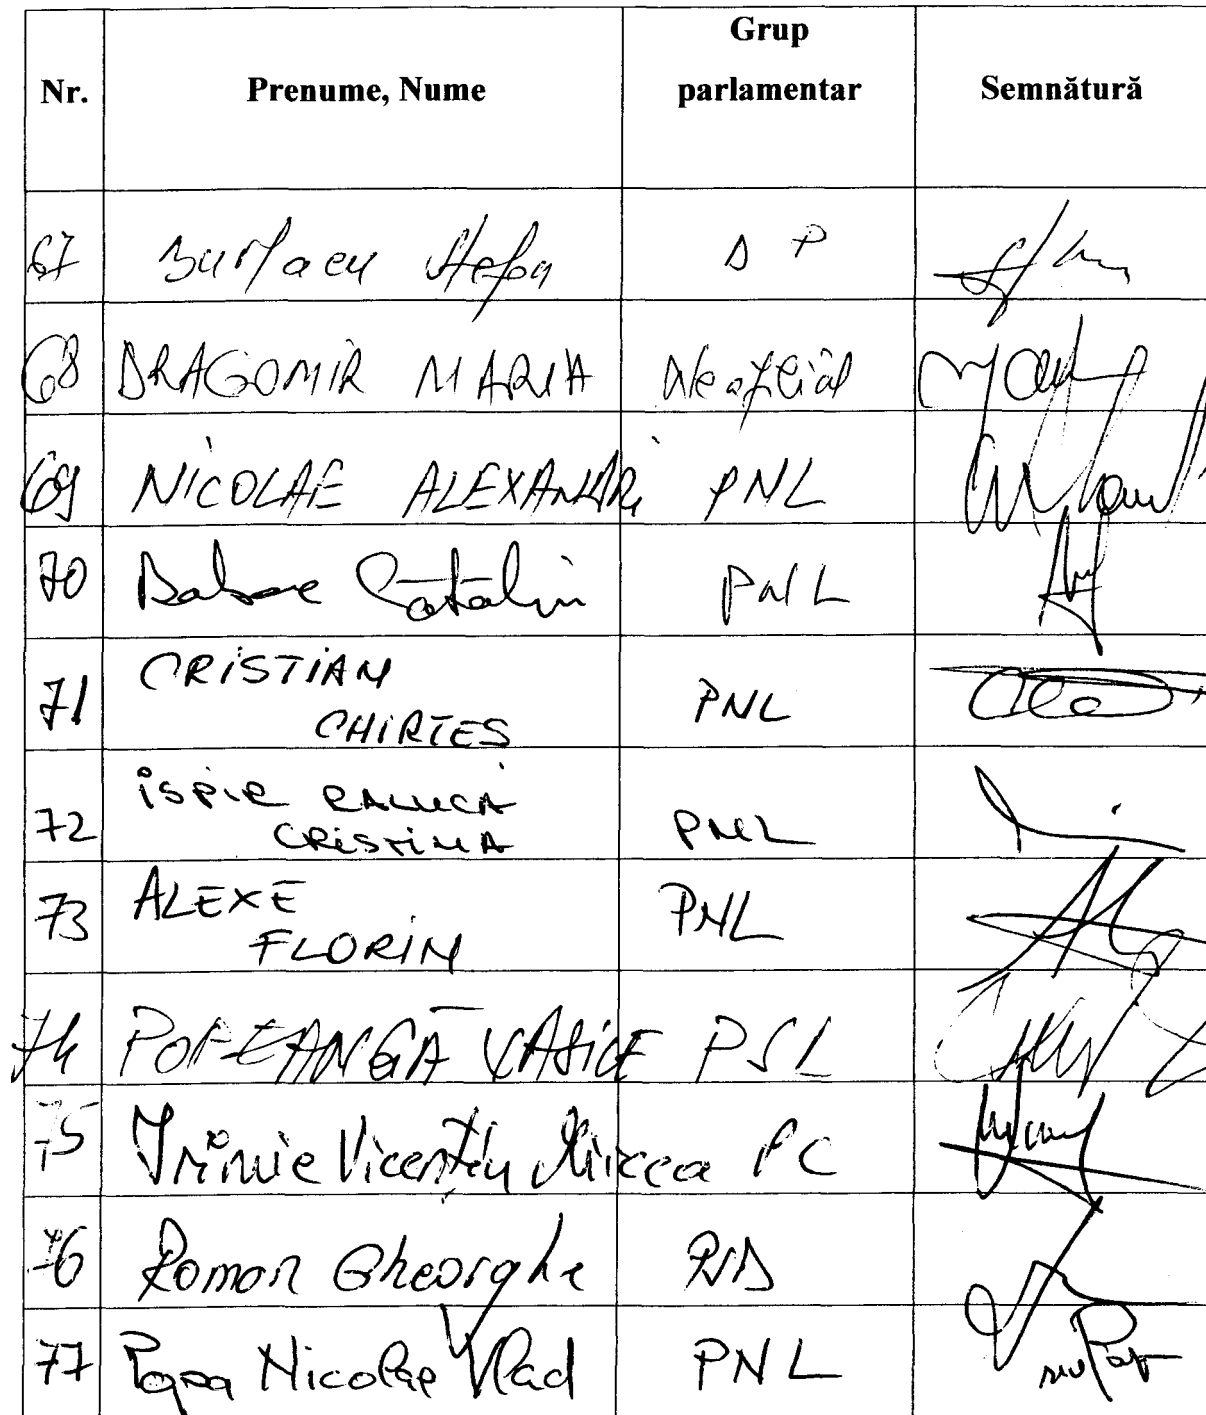 Nr.
Prenume, Nume
Grup
parlamentar
Semnătură
67 Burlacu Ștefan
68 DRAGOMIR MARIA Neafiliat
69 NICOLAE ALEXANDRI PNL
70 Cătălin PNL
71 CRISTIAN
CHIRTES PNL
72 ISPIR RALUCA
CRISTINA PNL
73 ALEXE
FLORIN PNL
74 POPEANGĂ VASILE PSL
75 Irimie Vicențiu Mircea PC
76 Roman Gheorghe
77 Popa Nicolae Vlad PNL